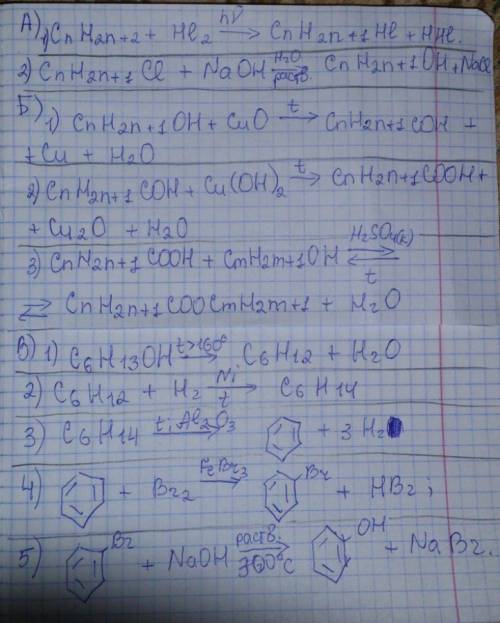 А) 1) CnH2n+2 + Hl2 →(hν) CnH2n+1Hl + HHl.
2) CnH2n+1Cl + NaOH →(H2O раств.) CnH2n+1OH + NaCl
Б) 1) CnH2n+1OH + CuO →(t) CnH2n+1COH +
+ Cu + H2O
2) CnH2n+1COH + Cu(OH)2 →(t) CnH2n+1COOH +
+ Cu2O + H2O
3) CnH2n+1COOH + CmH2m+1OH ⇄(H2SO4(к) t)
⇄ CnH2n+1COOCmH2m+1 + H2O
В) 1) C6H13OH →(t>160°) C6H12 + H2O
2) C6H12 + H2 →(Ni t) C6H14
3) C6H14 →(t; Al2O3) + 3H2
4) + Br2 →(FeBr3) Br + HBr;
5) Br + NaOH →(раств. 300°C) OH + NaBr.